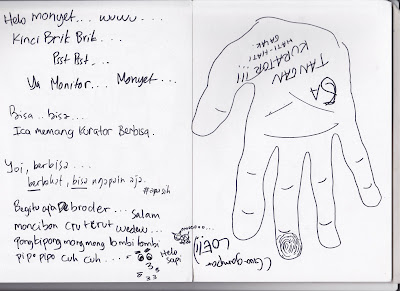 Helo monyet... wuwu....
Kinci Brik Brik...
Psst Psst...
Yu Monitor... Monyet....
Bisa.. bisa...
Ica memang Kurator Berbisa.
Yoi, berbisa....
berbakat, bisa ngapain aja.
Begitu apa broder... salam
moncibon crutcrut wedew...
pongkipong mongmong bombi bombi
pipopipo cuh cuh....
Helo
sapi
TANGAN
KURATOR!!!
HATI-HATI
GALAK